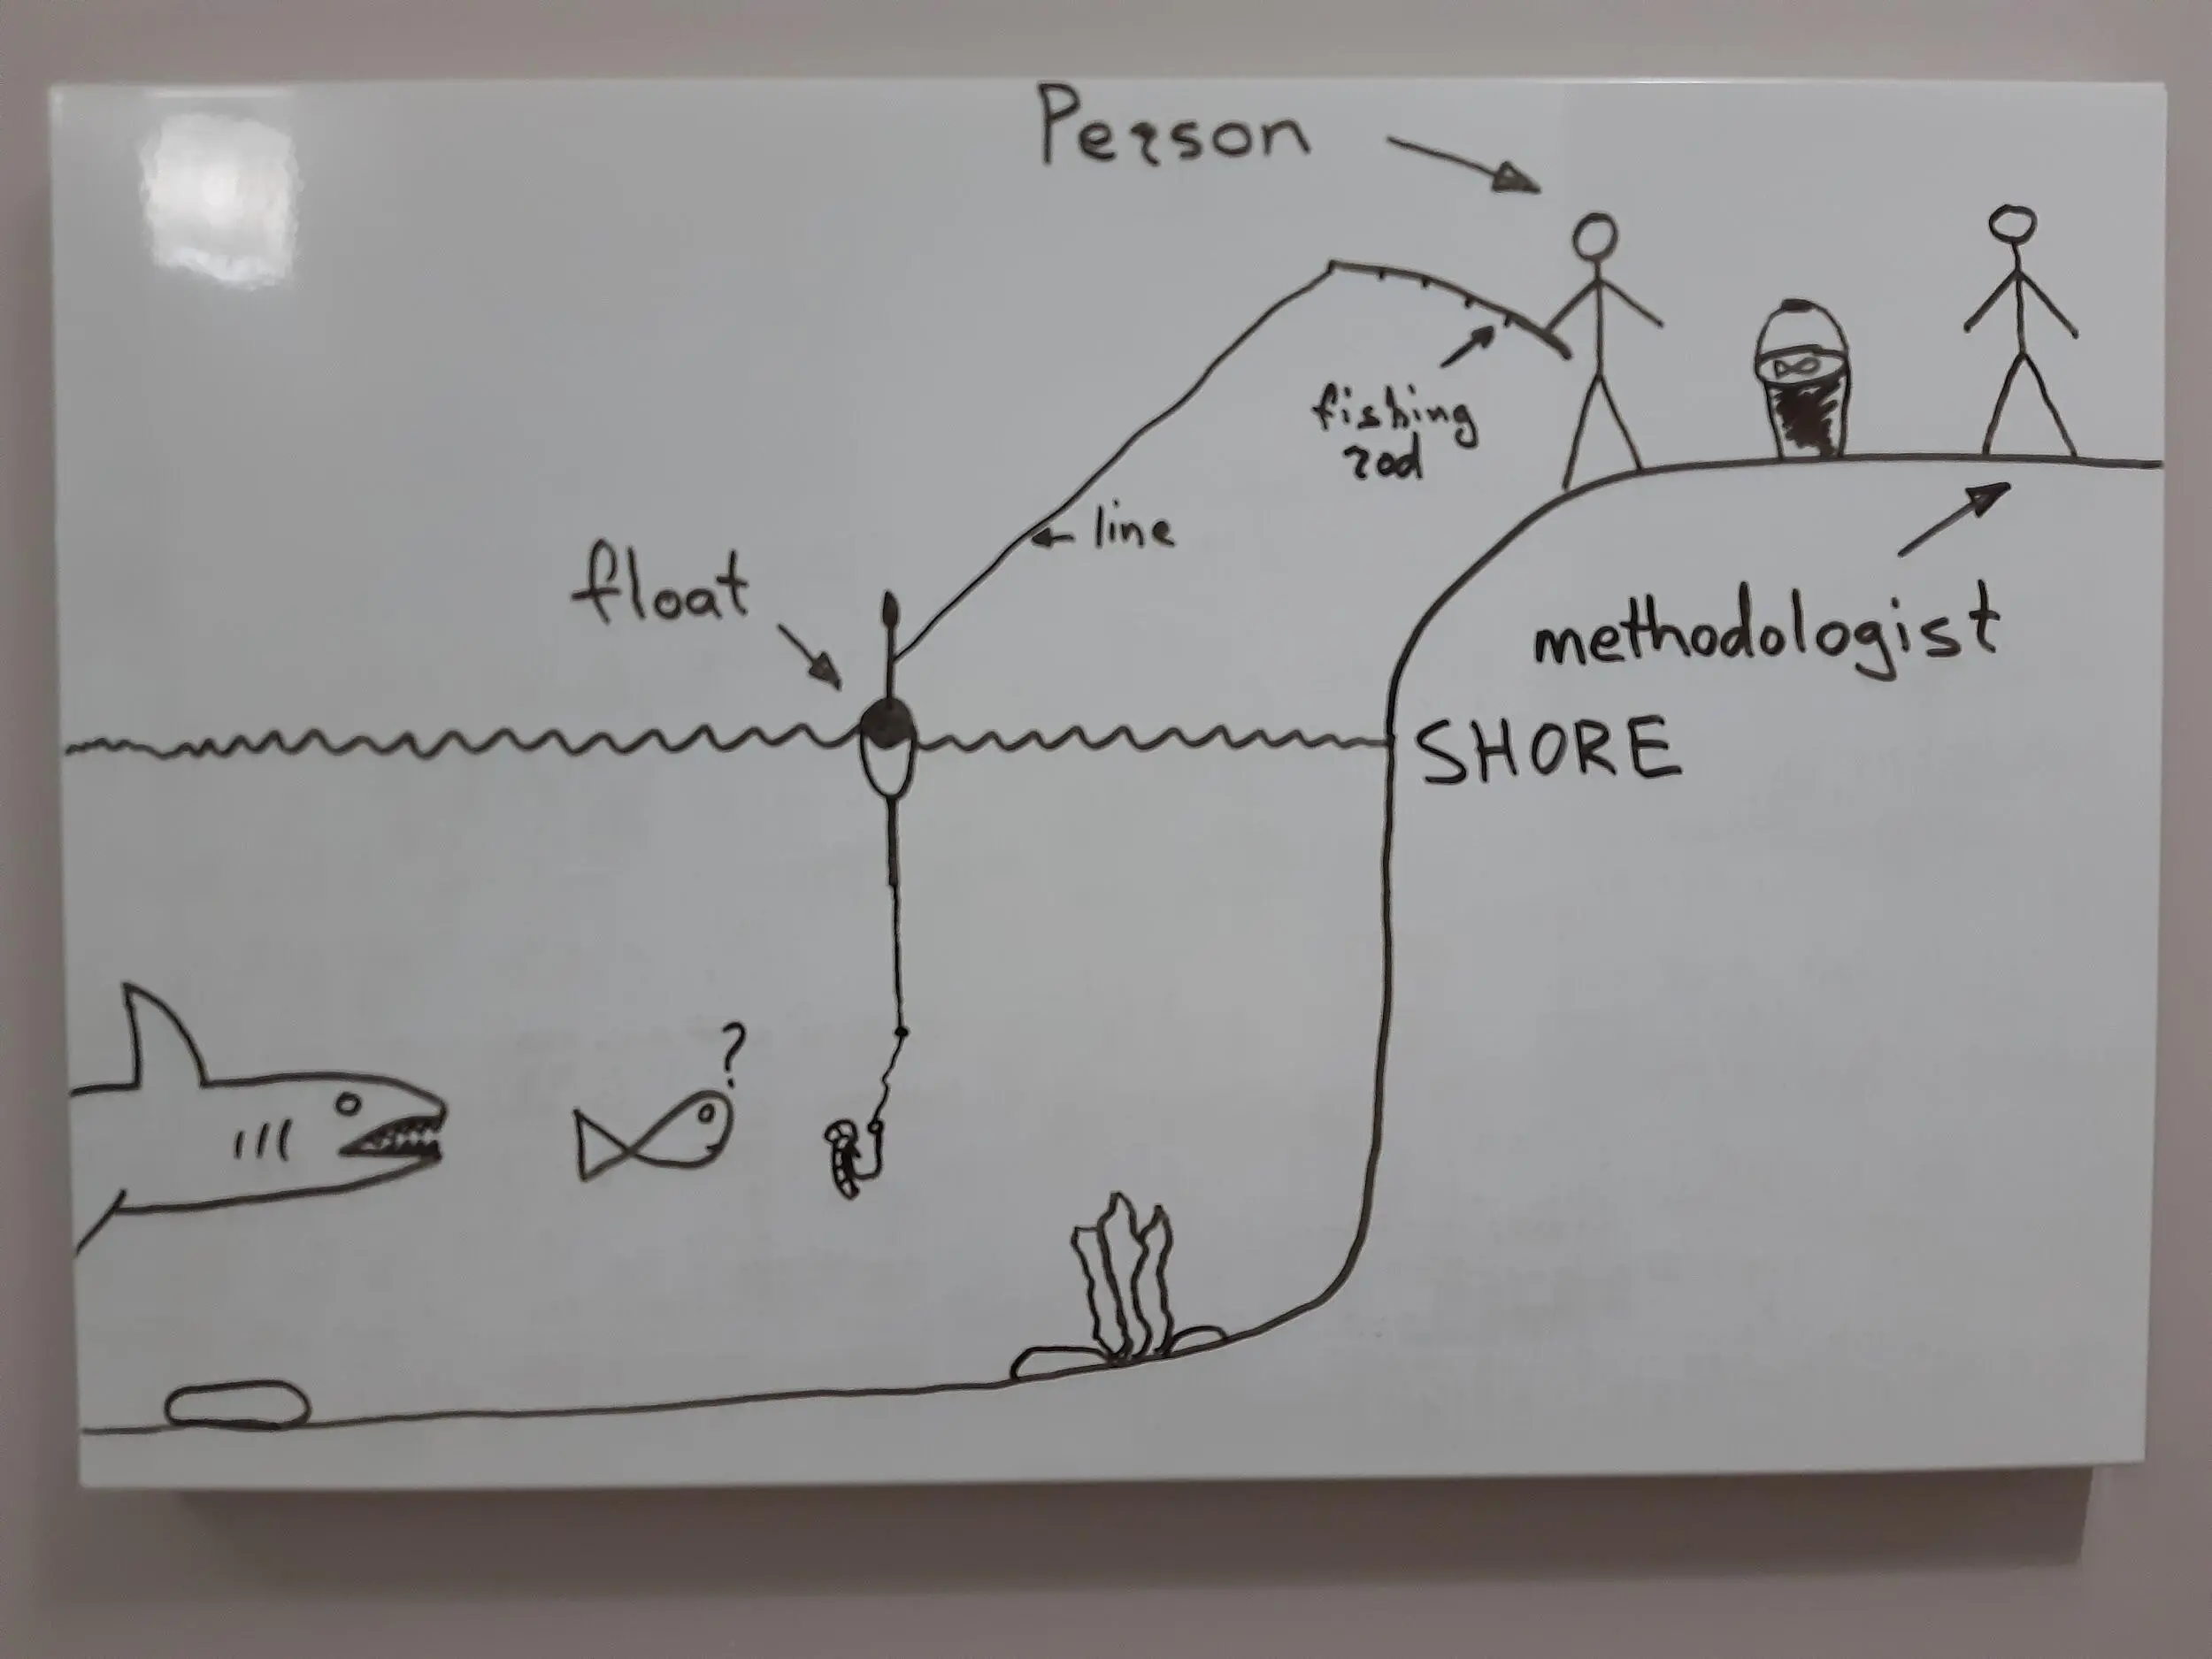 Person
fishing
rod
line
float
methodologist
SHORE
?